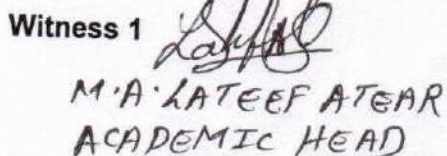 Witness 1
M.A. LATEEF ATEAR
ACADEMIC HEAD